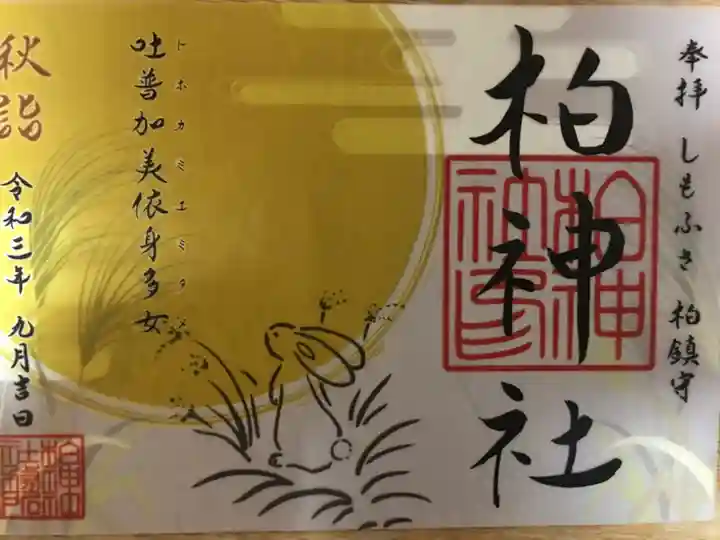 奉拝 しもふさ 柏鎮守
柏神社
トホカミエミタメ
吐普加美依身多女
秋詣
令和三年 九月吉日